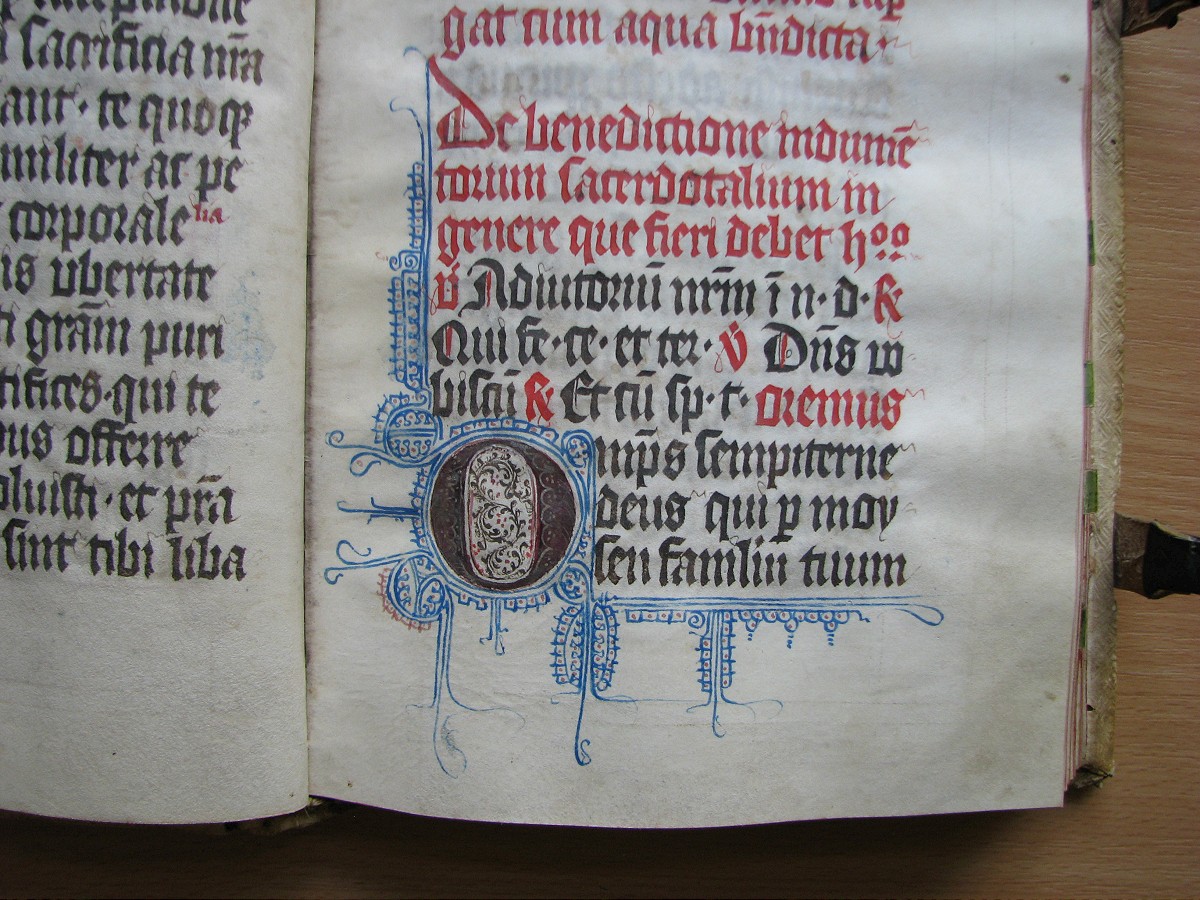 sacrificia nr̄a
ant · te quoqꝫ
militer ac pe
corporale lia
is vbertate
grām puri
tifices · qui te
us offerre
luisti · et prā
sint tibi liba
gat cum aqua bn̄dicta ·
De benedictione indumē
torum sacerdotalium in
genere que fieri debet h°°
℣ Adiutoriū nr̄m ī n · d · ℟
Qui fe · ce · et ter · ℣ Dn̄s vo
biscū ℟ Et cū sp · t · oremus
Omp̄s sempiterne
deus qui ꝑ moy
sen famulū tuum